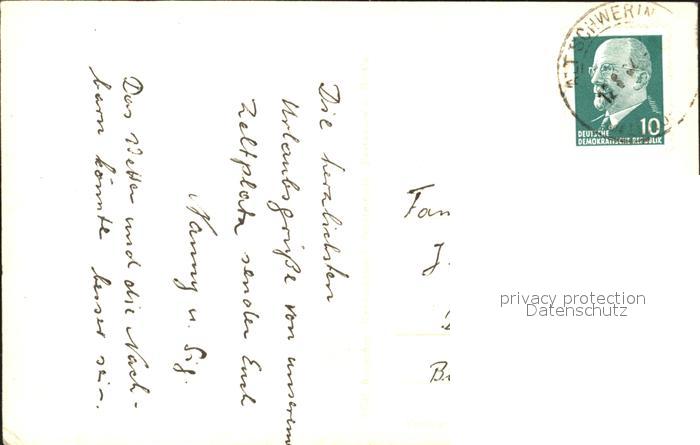 Die herzlichsten
Urlaubsgrüße von unserem
Zeltplatz senden Euch
Nanny u. Sig.
Das Wetter und die Nach-
barn könnte besser sein.
ALT SCHWERIN
10
DEUTSCHE
DEMOKRATISCHE REPUBLIK
Fam
J.
privacy protection
Datenschutz